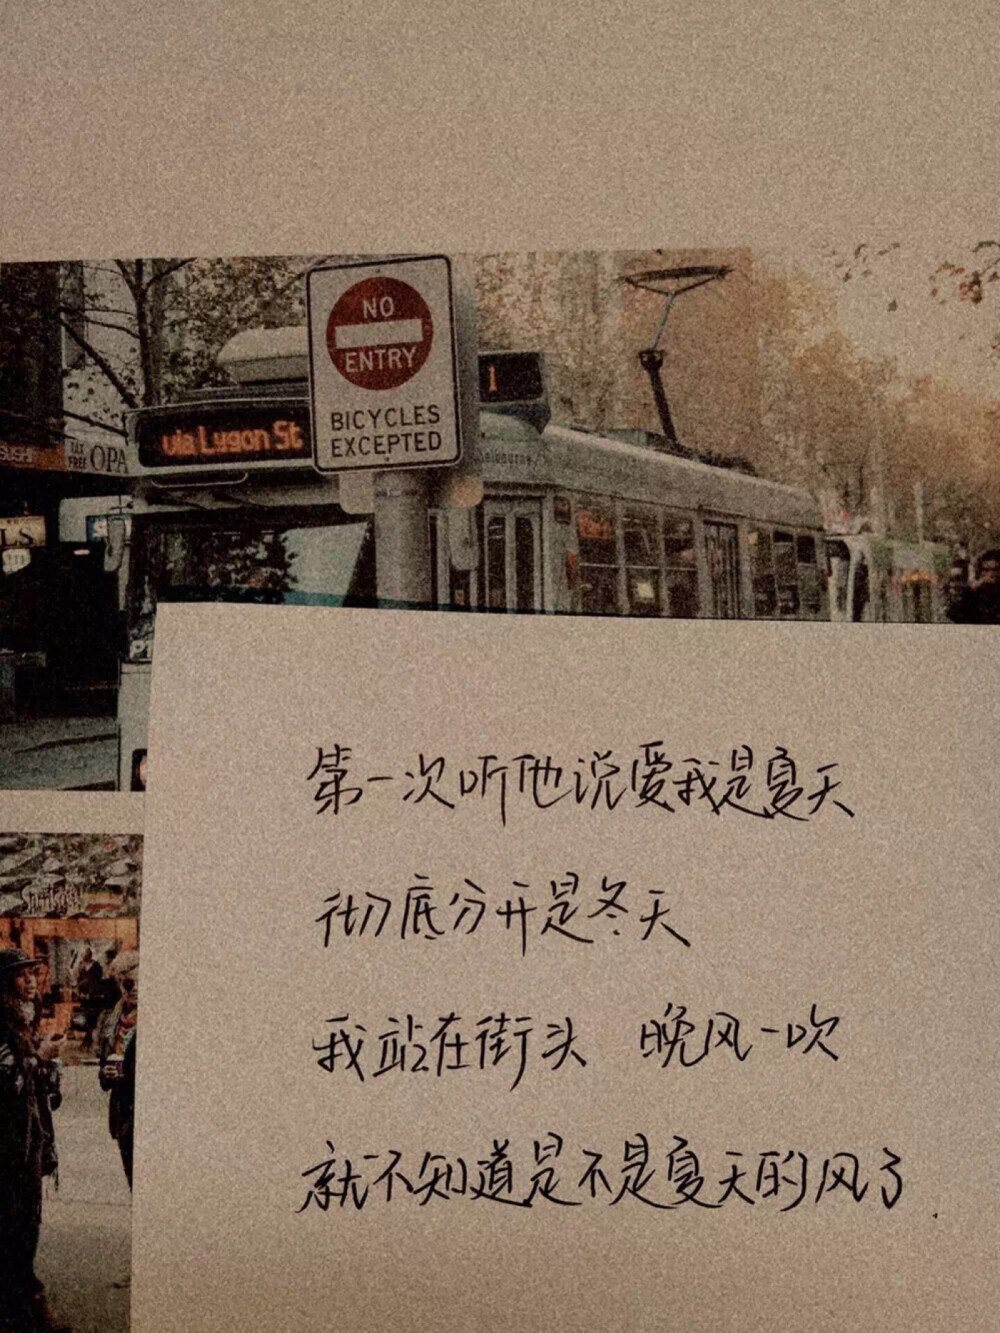 NO
ENTRY
BICYCLES
EXCEPTED
1
via Lygon St
Melbourne
SUSHI
TAX
FREE
OPA
第一次听他说爱我是夏天
彻底分开是冬天
我站在街头 晚风一吹
就不知道是不是夏天的风了.